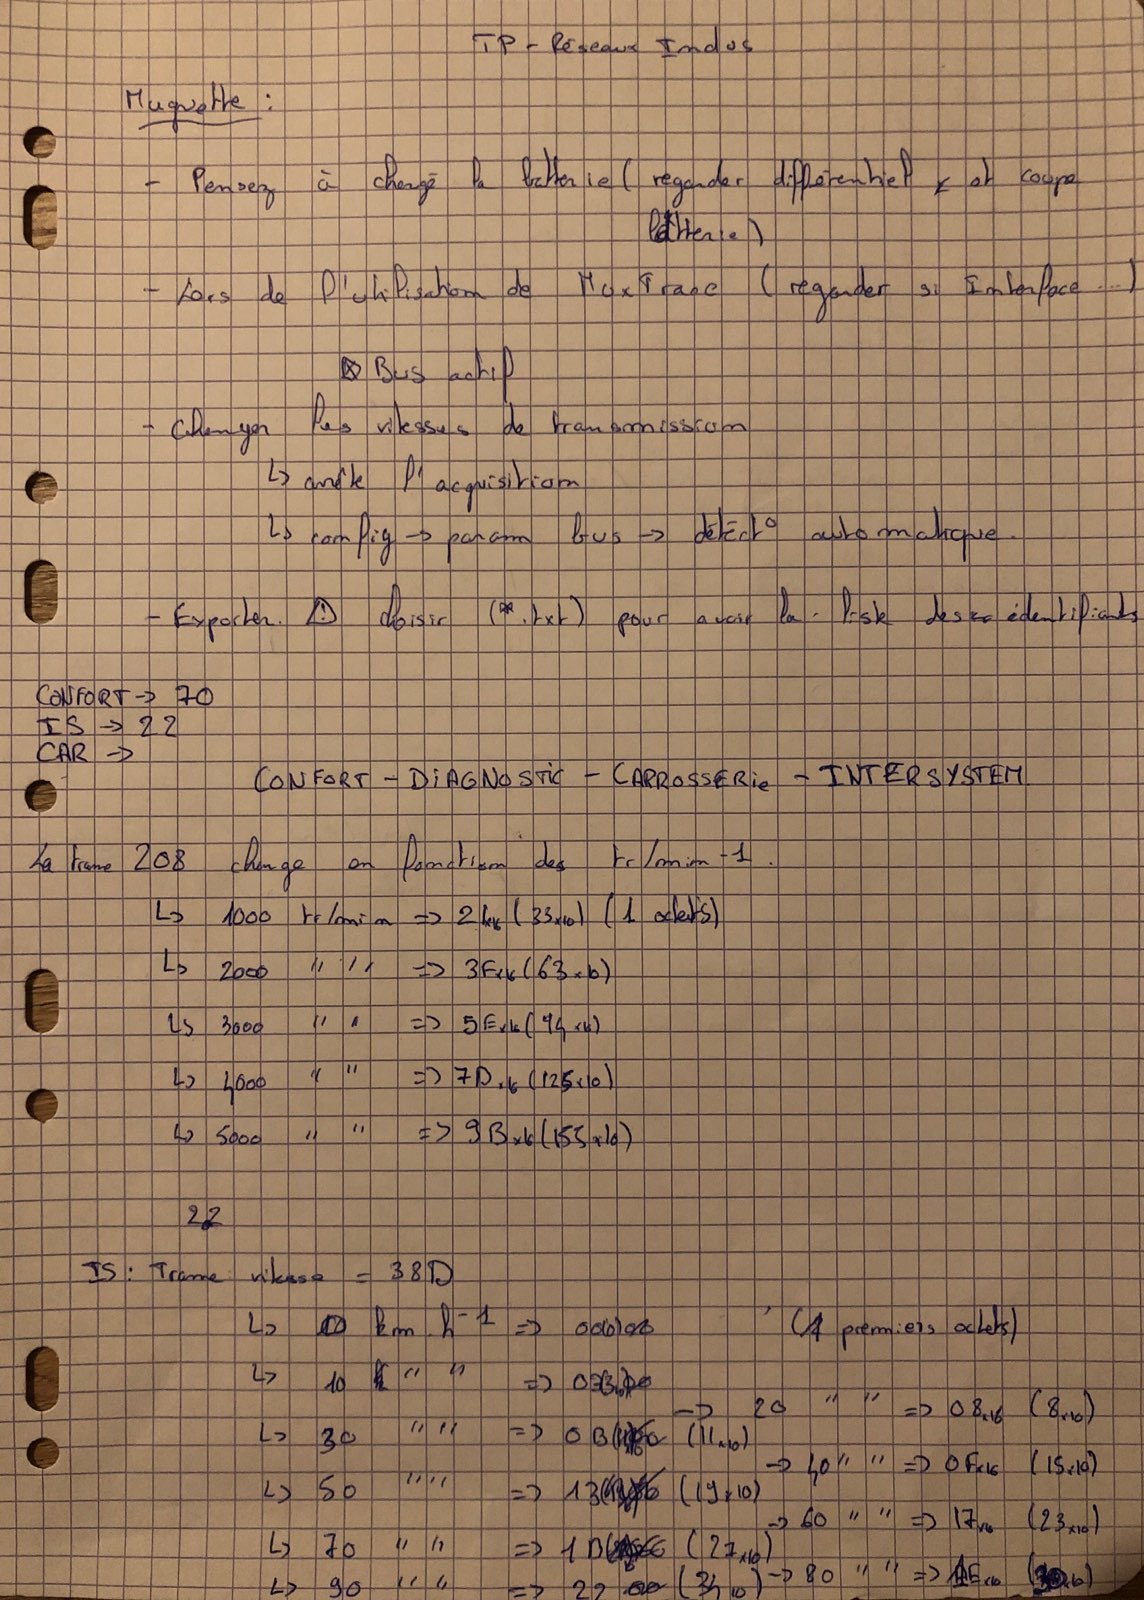 TP - Réseaux Indus
Maquette :
- Pensez à changé la batterie ( regarder différentiel et coupe
batterie )
- Lors de l'utilisation de MuxTrace ( regarder si Interface ... )
Bus actif
- Changer les vitesses de transmission
↳ arrête l'acquisition
↳ config → param bus → détect° automatique.
- Exporter. ⚠ choisir (*.txt) pour avoir la liste des identifiants
CONFORT → 70
IS → 22
CAR →
CONFORT - DIAGNOSTIC - CARROSSERIE - INTERSYSTEM
La trame 208 change en fonction des tr/min-1.
↳ 1000 tr/min => (33x10) (1 octets)
↳ 2000 " " => 3Fx16 (63x10)
↳ 3000 " " => 5Ex16 (94x10)
↳ 4000 " " => 7Dx16 (125x10)
↳ 5000 " " => 9Bx16 (155x10)
22
IS : Trame vitesse = 38D
↳ 0 km.h-1 => (1 premiers octets)
↳ 10 " " => 03
→ 20 " " => 08x16 (8x10)
↳ 30 " " => 0B (11x10)
→ 40 " " => 0Fx16 (15x10)
↳ 50 " " => 13 (19x10)
→ 60 " " => 17x16 (23x10)
↳ 70 " " => 1B (27x10)
→ 80 " " => 1Ex16
↳ 90 " " => 22 (34x10)